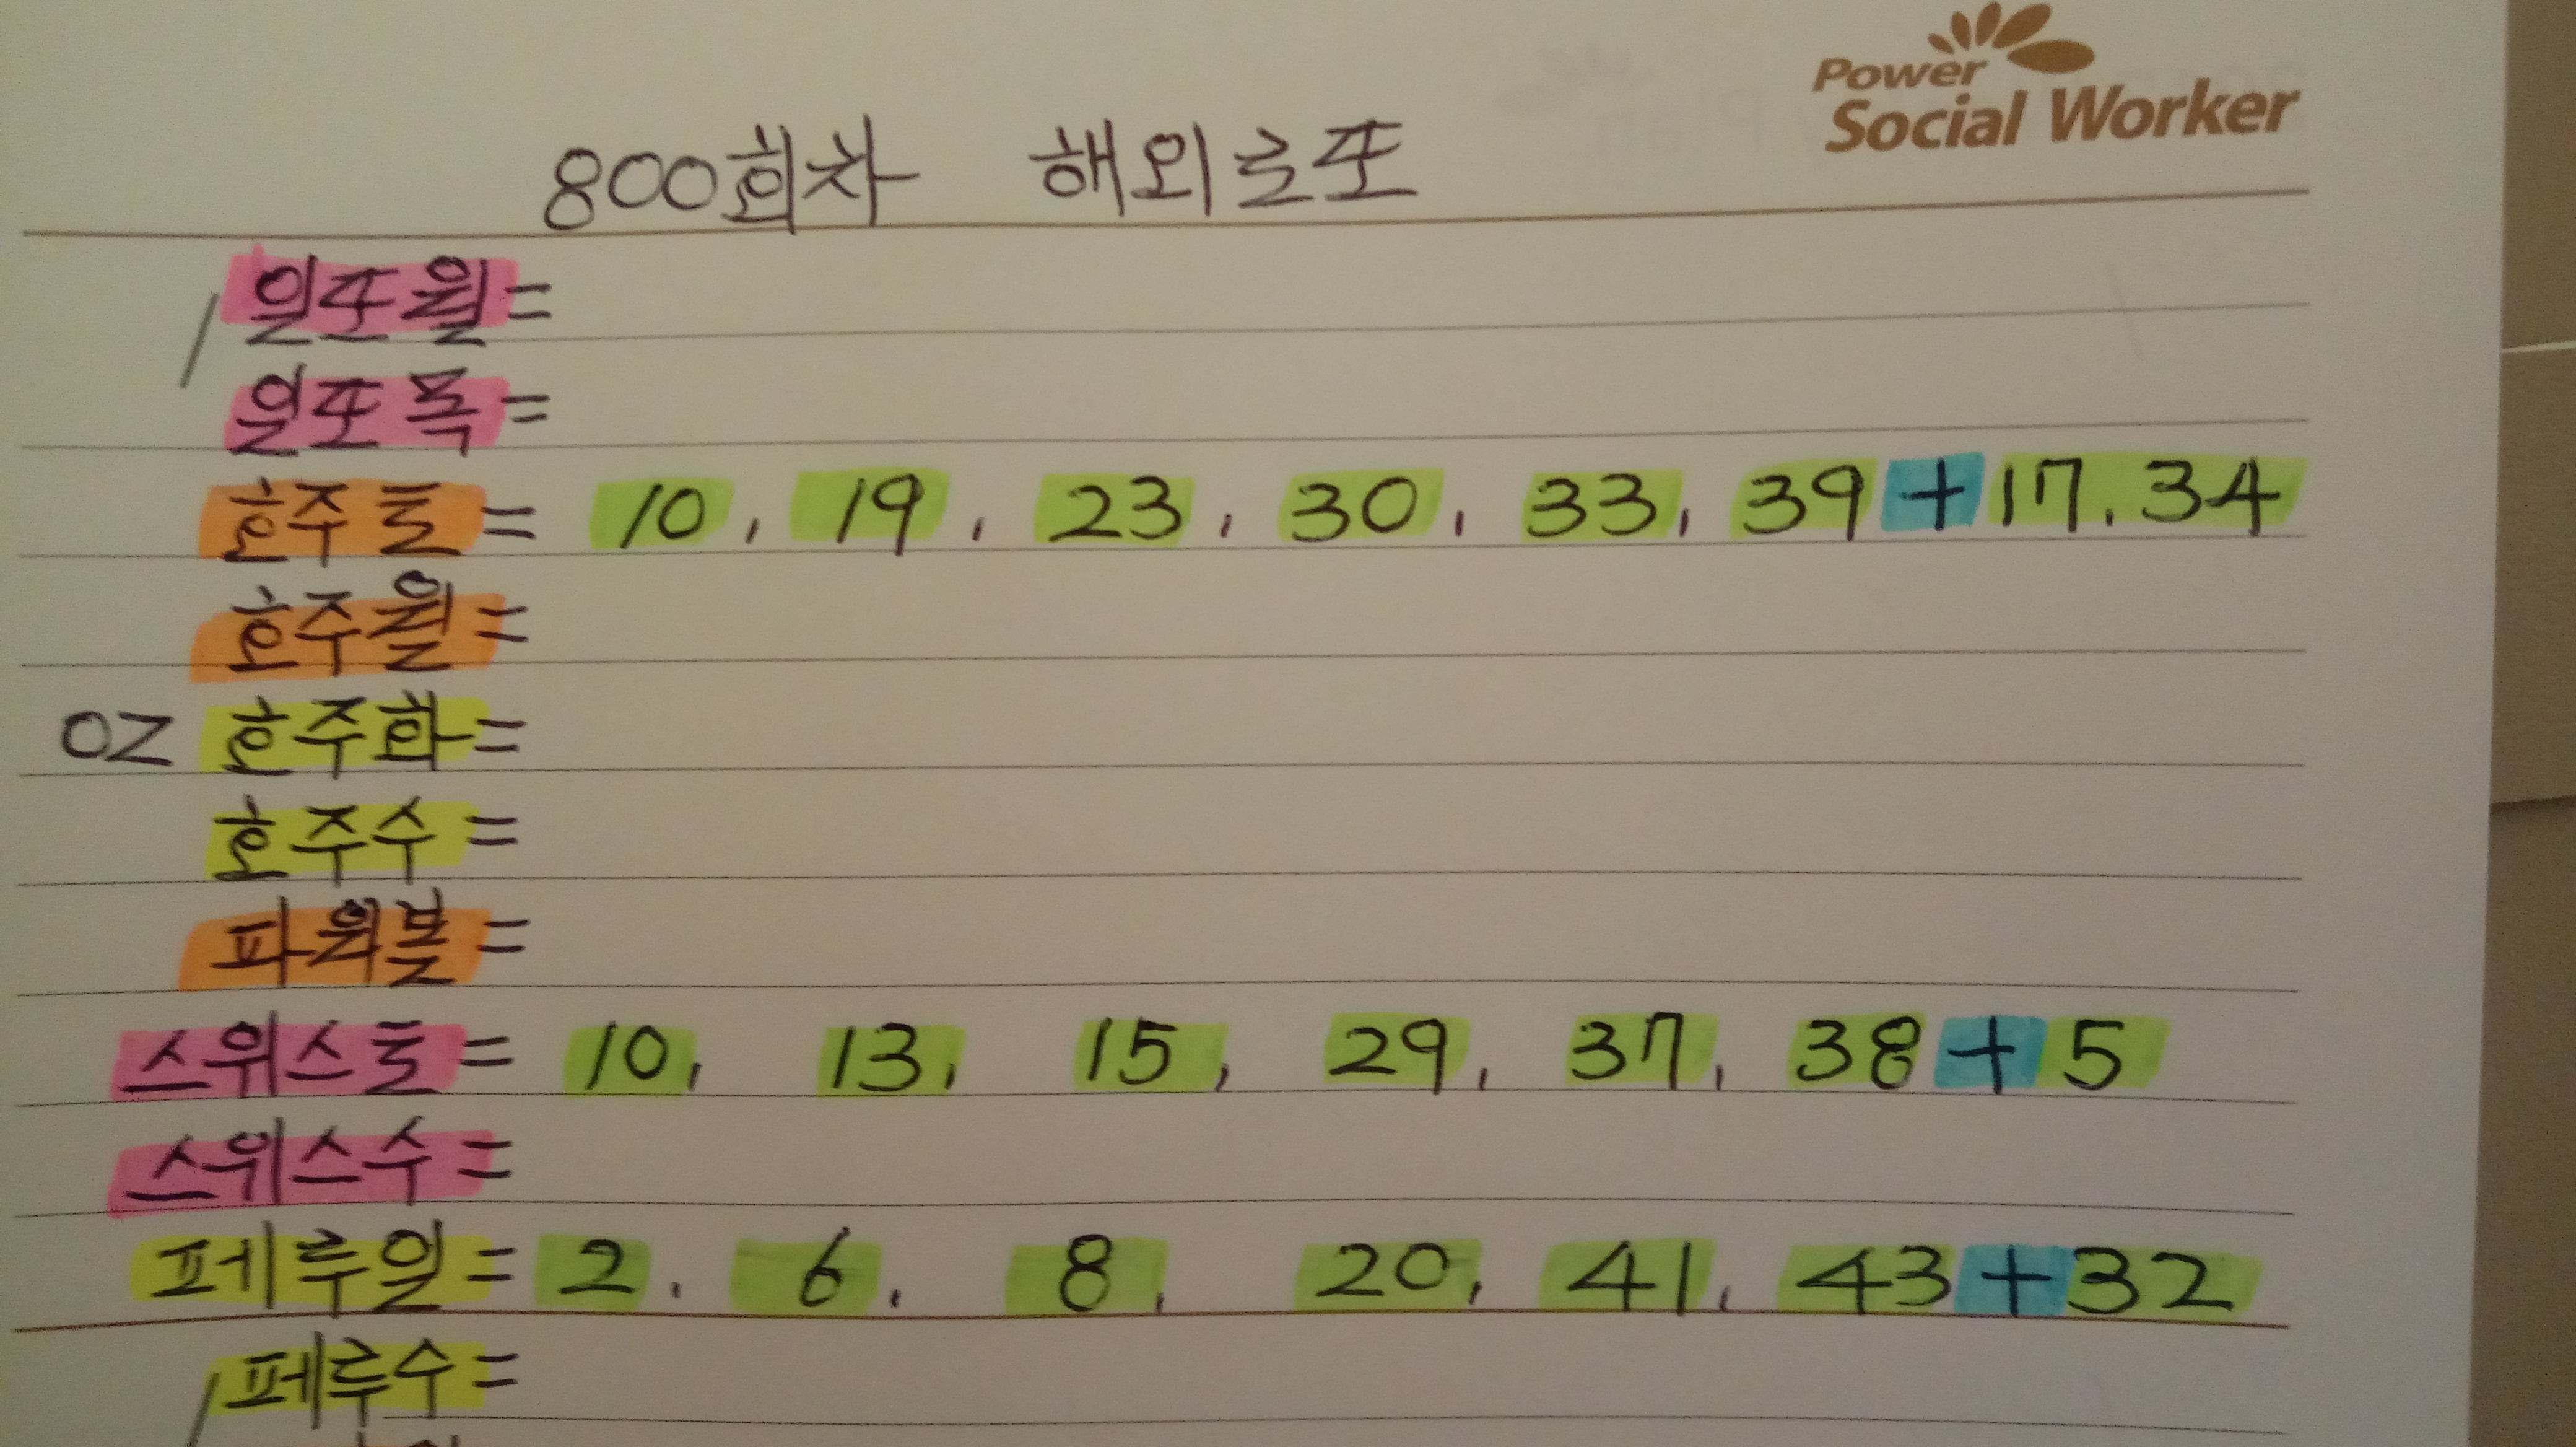 Power
Social Worker
800회차 해외로또
일또월=
일또목=
호주토= 10, 19, 23, 30, 33, 39+17, 34
호주월=
OZ 호주화=
호주수=
파워볼=
스위스토= 10, 13, 15, 29, 37, 38+5
스위스수=
페루일= 2, 6, 8, 20, 41, 43+32
페루수=